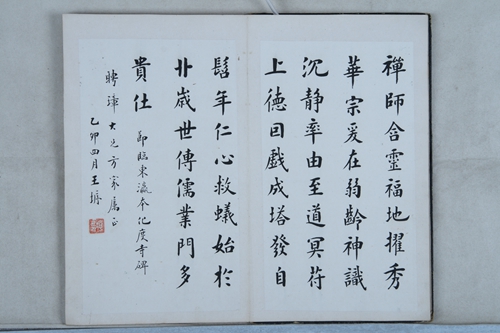 禪師含靈福地擢秀
華宗爰在弱齡神識
沉静率由至道冥苻
上徳囙戲成塔發自
髫年仁心救蟻始於
卝歲世傳儒業門多
貴仕
節臨東瀛本化度寺碑
大兄方家屬正
乙卯四月王